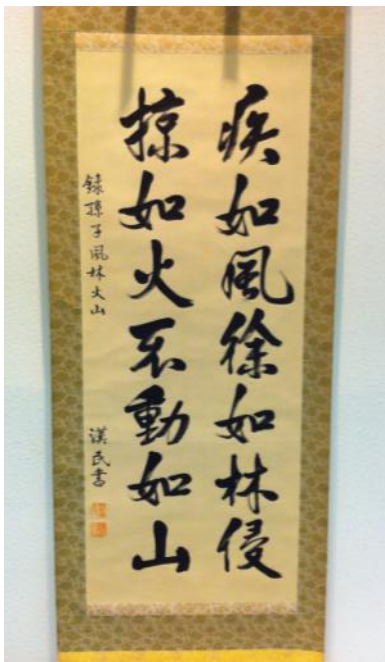 疾如風徐如林侵
掠如火不動如山
錄孫子風林火山
漢民書